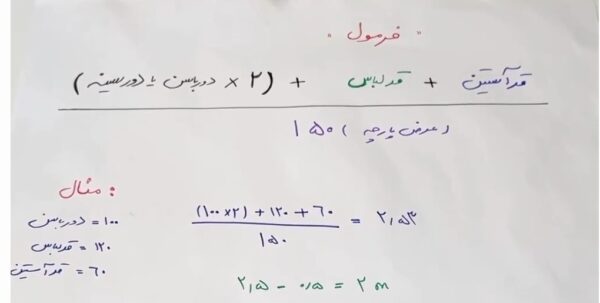 " فرمول "
قد آستین + قد لباس + (۲ × دور باسن یا دور سینه)
۱۵۰ (عرض پارچه)
مثال :
۱۰۰ = دور باسن
۱۲۰ = قد لباس
۶۰ = قد آستین
(۱۰۰×۲) + ۱۲۰ + ۶۰ = ۲٫۵۳
۱۵۰
۲٫۵ - ۰٫۵ = ۲ m